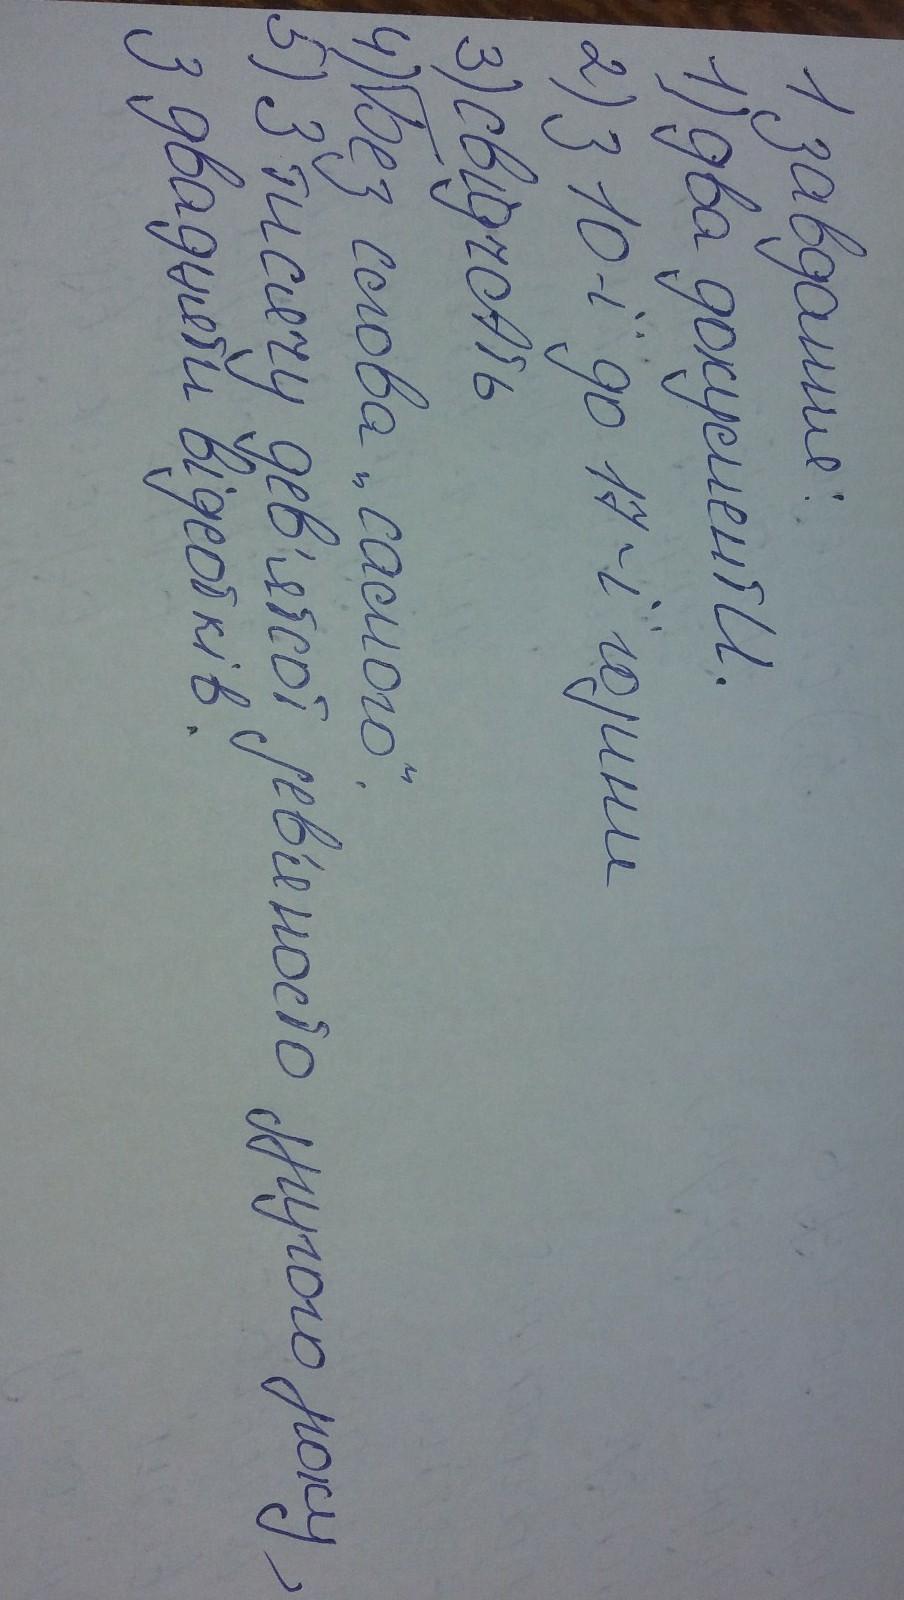 1 завдання:
1) два документи.
2) З 10-ї до 17-ї години
3) свідчать
4) Без слова „самого".
5) З тисячу дев'ятсот дев'яносто другого року,
З двадцяти відсотків.